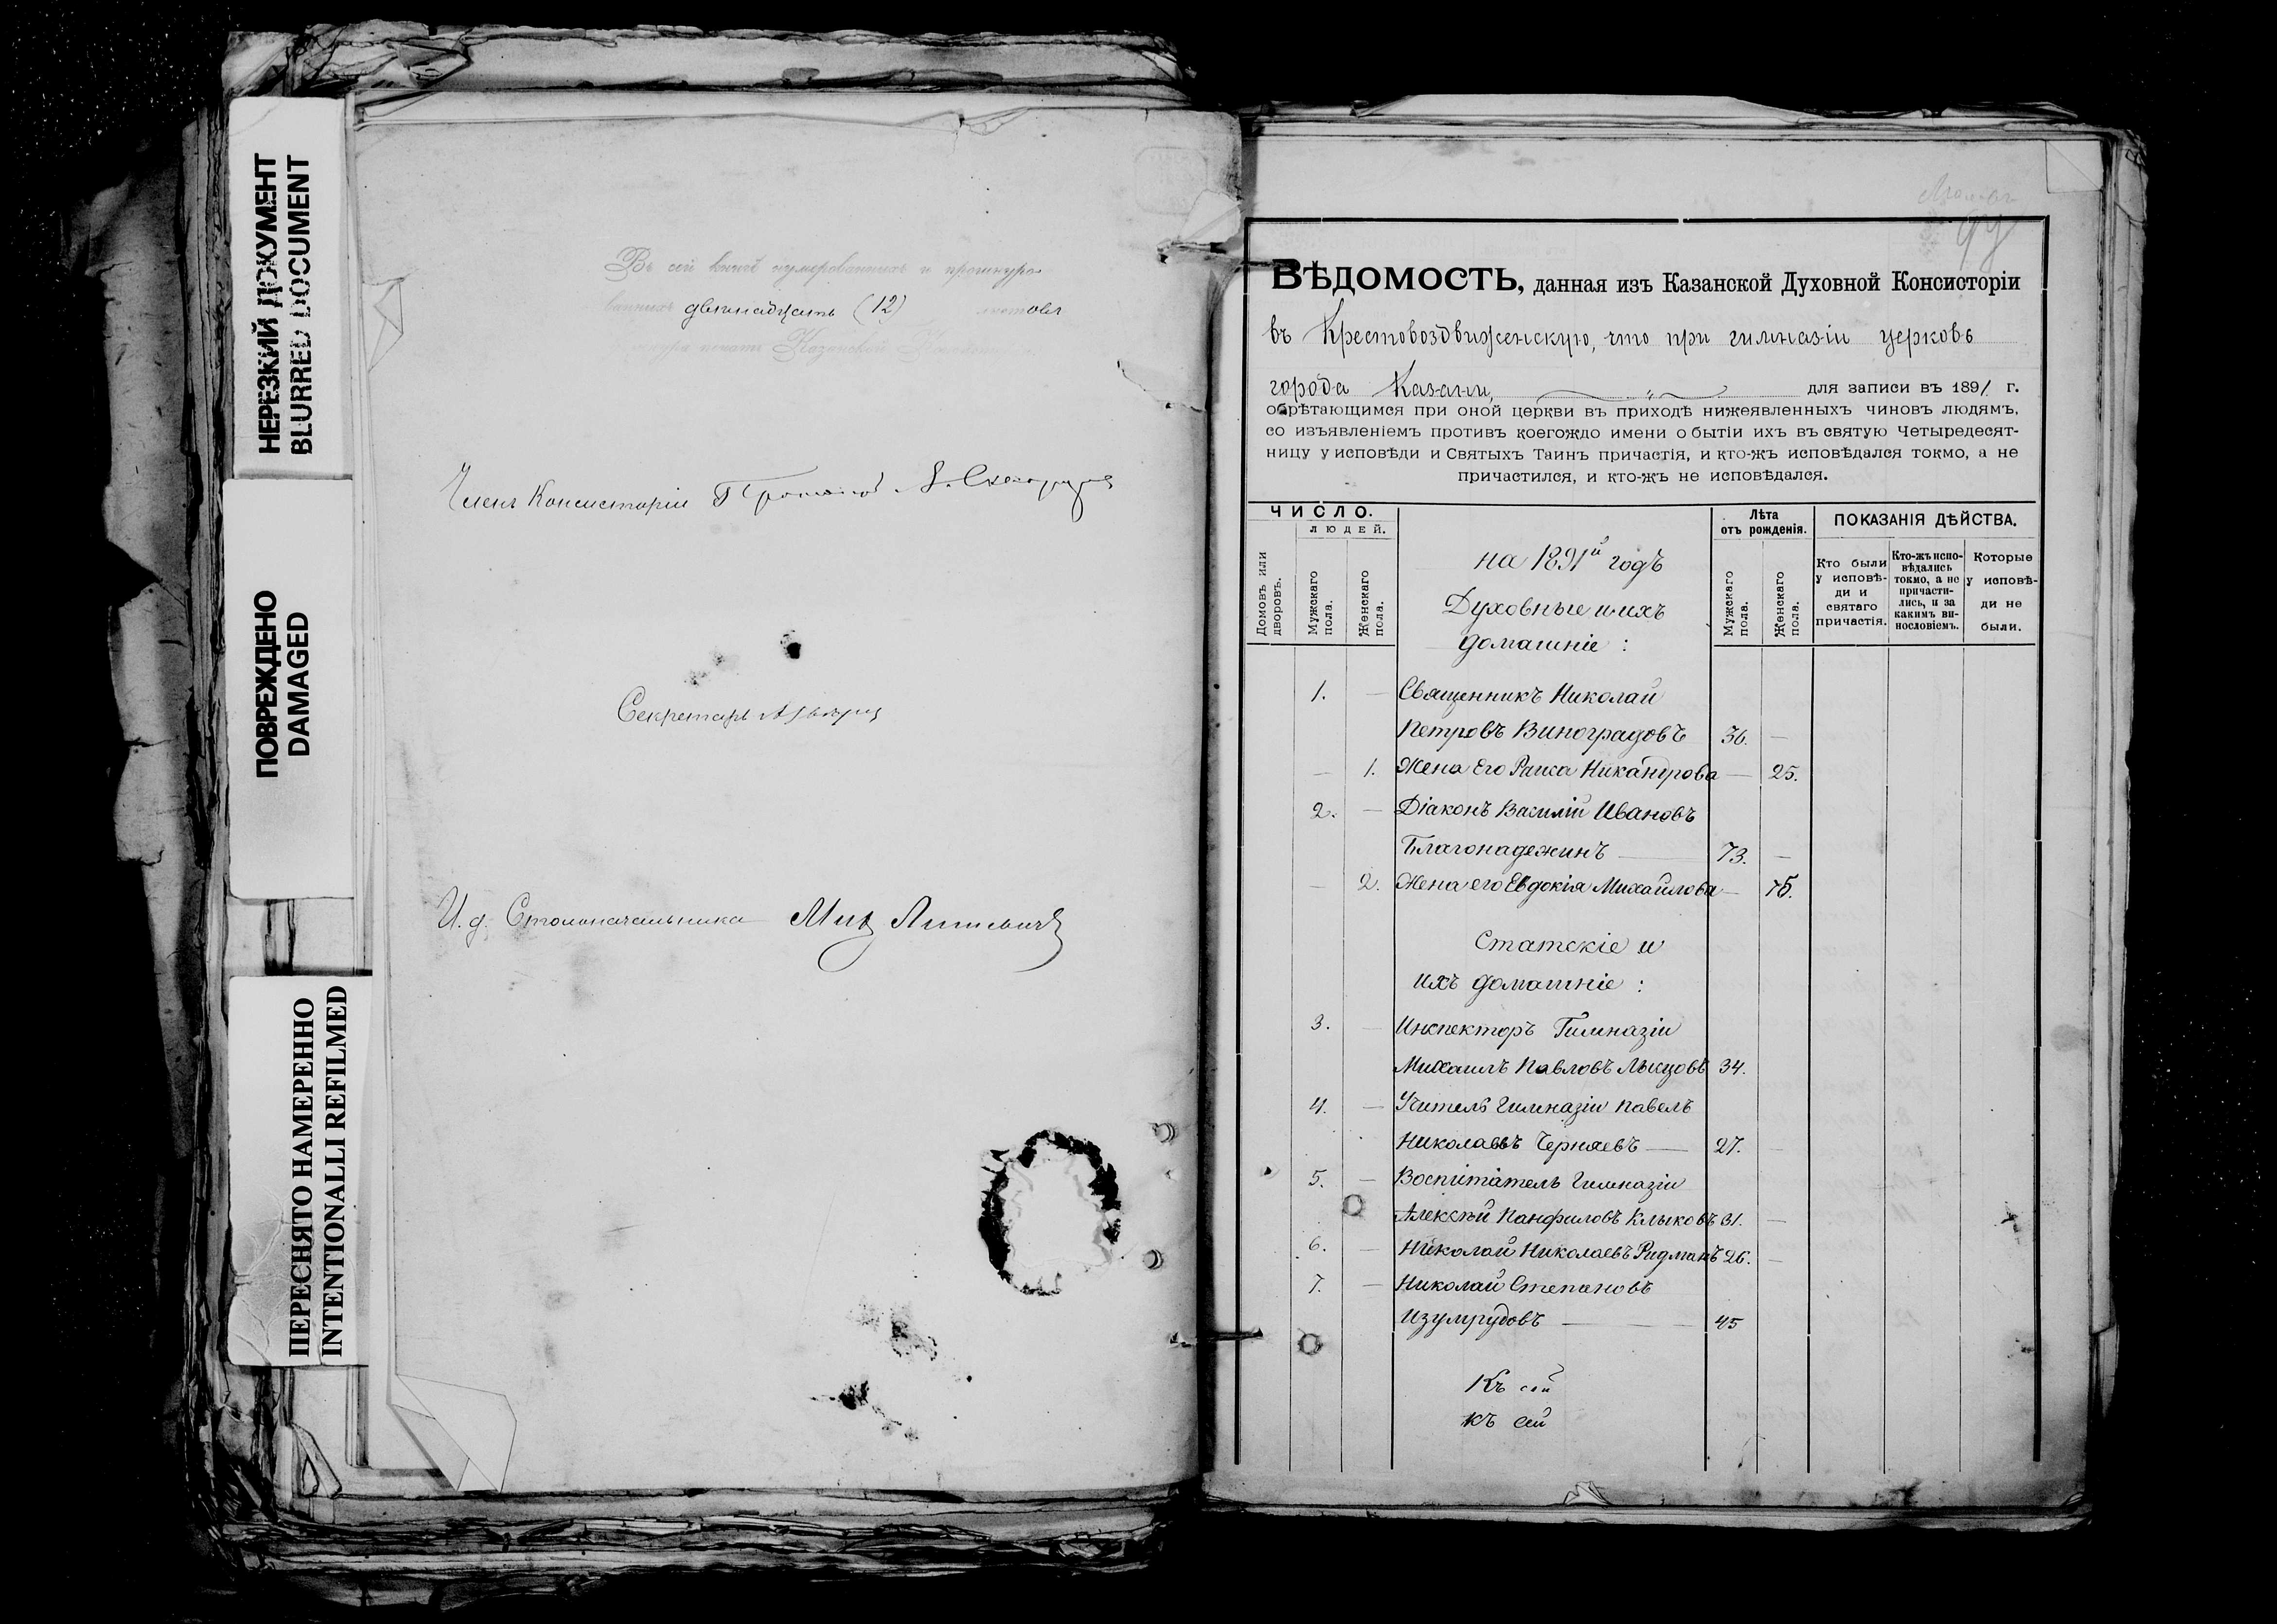 НЕРЕЗКИЙ ДОКУМЕНТ
BLURRED DOCUMENT
ПОВРЕЖДЕНО
DAMAGED
ПЕРЕСНЯТО НАМЕРЕННО
INTENTIONALLI REFILMED
Въ сей книгѣ нумерованныхъ и прошнуро-
ванныхъ двѣнадцать (12) листовъ
Казанской
Членъ Консисторіи
Секретарь
И. д. Столоначальника
97
ВѢДОМОСТЬ, данная изъ Казанской Духовной Консисторіи
въ Крестовоздвиженскую, что при гимназіи церковь
города Казани, для записи въ 1891 г.
обрѣтающимся при оной церкви въ приходѣ нижеявленныхъ чиновъ людямъ,
со изъявленіемъ противъ коегождо имени о бытіи ихъ въ святую Четыредесят-
ницу у исповѣди и Святыхъ Таинъ причастія, и кто-жъ исповѣдался токмо, а не
причастился, и кто-жъ не исповѣдался.
ЧИСЛО.
людей.
Домовъ или дворовъ.
Мужскаго пола.
Женскаго пола.
на 1891й годъ
Духовные и ихъ
домашніе :
Лѣта
отъ рожденія.
Мужскаго пола.
Женскаго пола.
ПОКАЗАНІЯ ДѢЙСТВА.
Кто были
у исповѣ-
ди и
святаго
причастія.
Кто-жъ испо-
вѣдались
токмо, а не
причасти-
лись, и за
какимъ ви-
нословіемъ.
Которые
у исповѣ-
ди не
были.
1. — Священникъ Николай
Петровъ Виноградовъ 36. —
— 1. Жена Его Раиса Никандрова — 25.
2. — Діаконъ Василій Ивановъ
Благонадежинъ — 73. —
— 2. Жена его Евдокія Михайлова — 75.
Статскіе и
ихъ домашніе :
3. — Инспекторъ Гимназіи
Михаилъ Павловъ 34.
4. — Учитель Гимназіи Павелъ
Николаевъ Черняевъ — 27. —
5. — Воспитатель Гимназіи
Алексѣй Панфиловъ Клыковъ 31. —
6. — Николай Николаевъ Ридманъ 26. —
7. — Николай Степановъ
Изумрудовъ — 45
Къ сей
къ сей